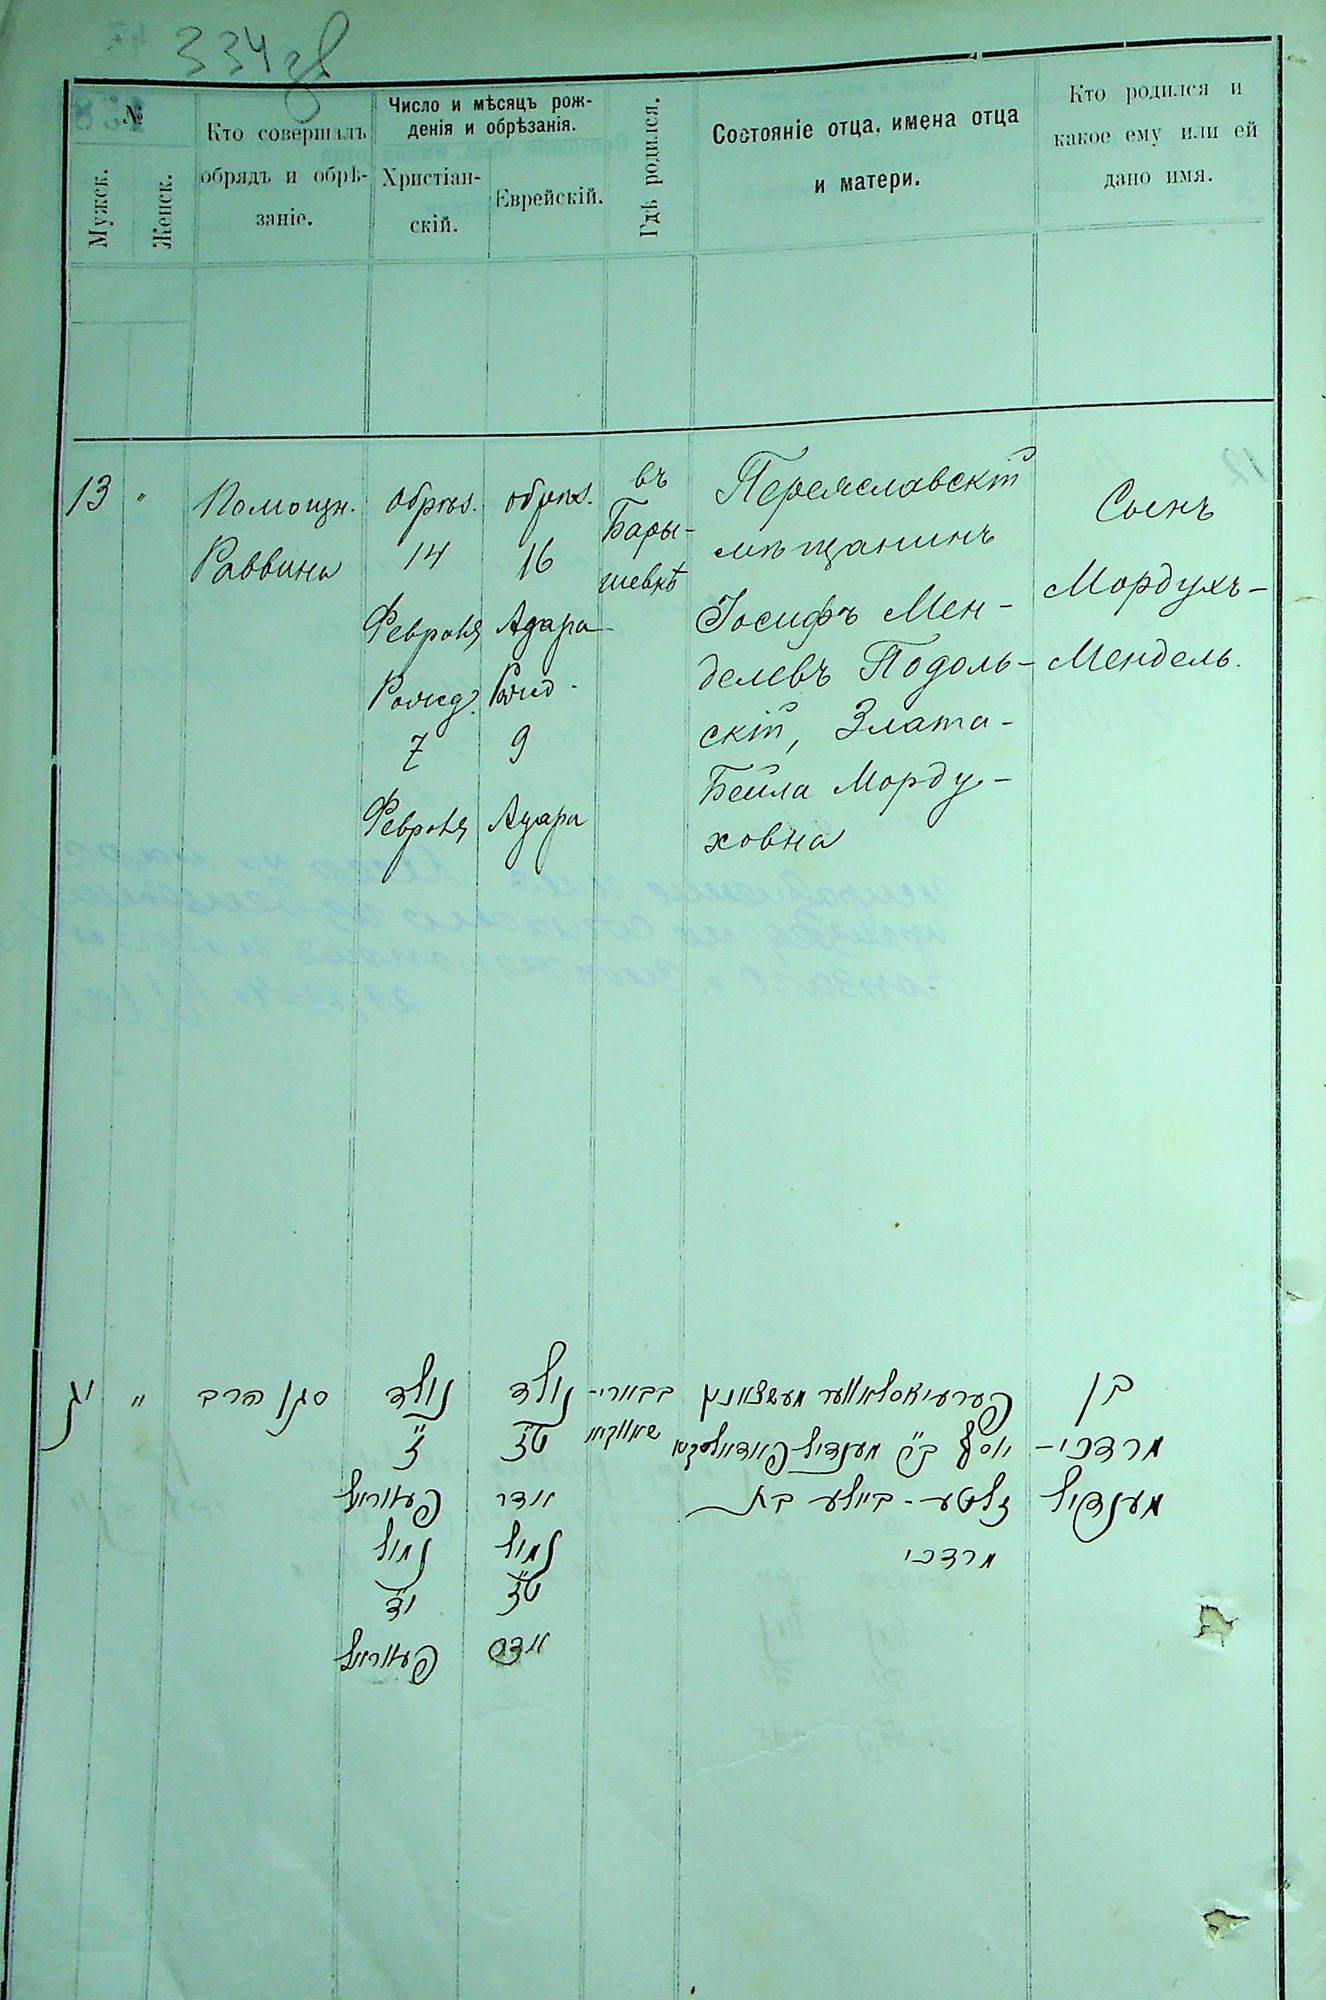 334
№
Мужск.
Женск.
Кто совершалъ
обрядъ и обрѣ-
заніе.
Число и мѣсяцъ рож-
денія и обрѣзанія.
Христіан-
скій.
Еврейскій.
Гдѣ родился.
Состояніе отца, имена отца
и матери.
Кто родился и
какое ему или ей
дано имя.
13
"
Помощн.
Раввина
обрѣз.
14
Февраля
Рожд.
7
Февраля
обрѣз.
16
Адара
Рожд.
9
Адара
въ
Бары-
шевкѣ
Переяславскій
мѣщанинъ
Іосифъ Мен-
делевъ Подоль-
скій, Злата-
Бейла Морду-
ховна
Сынъ
Мордухъ-
Мендель.
יג
"
סגן הרב
נולד
ז
פעוראל
נמול
יד
פעוראל
נולד
אדר
נמול
טז
אדר
בבארי-
שאווקא
פערעיאסלאווער מעשצאנין
יוסף ב"ר מענדיל פאדאלסקי
זלטע - ביילע בת
מרדכי
בן
מרדכי-
מענדיל